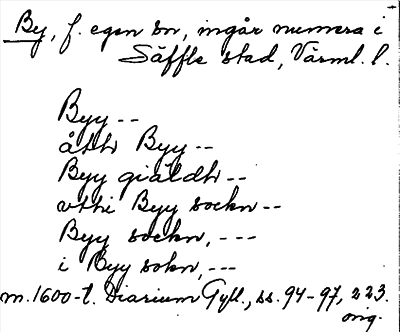 By, f. egen sn, ingår numera i
Säffle stad, Värml. l.
Byy --
åth Byy --
Byy giäldh --
vthi Byy sockn --
Byy sockn, ---
i Byy sokn, ---
m. 1600-t. Diarium Gyll., ss. 94-97, 223.
orig.